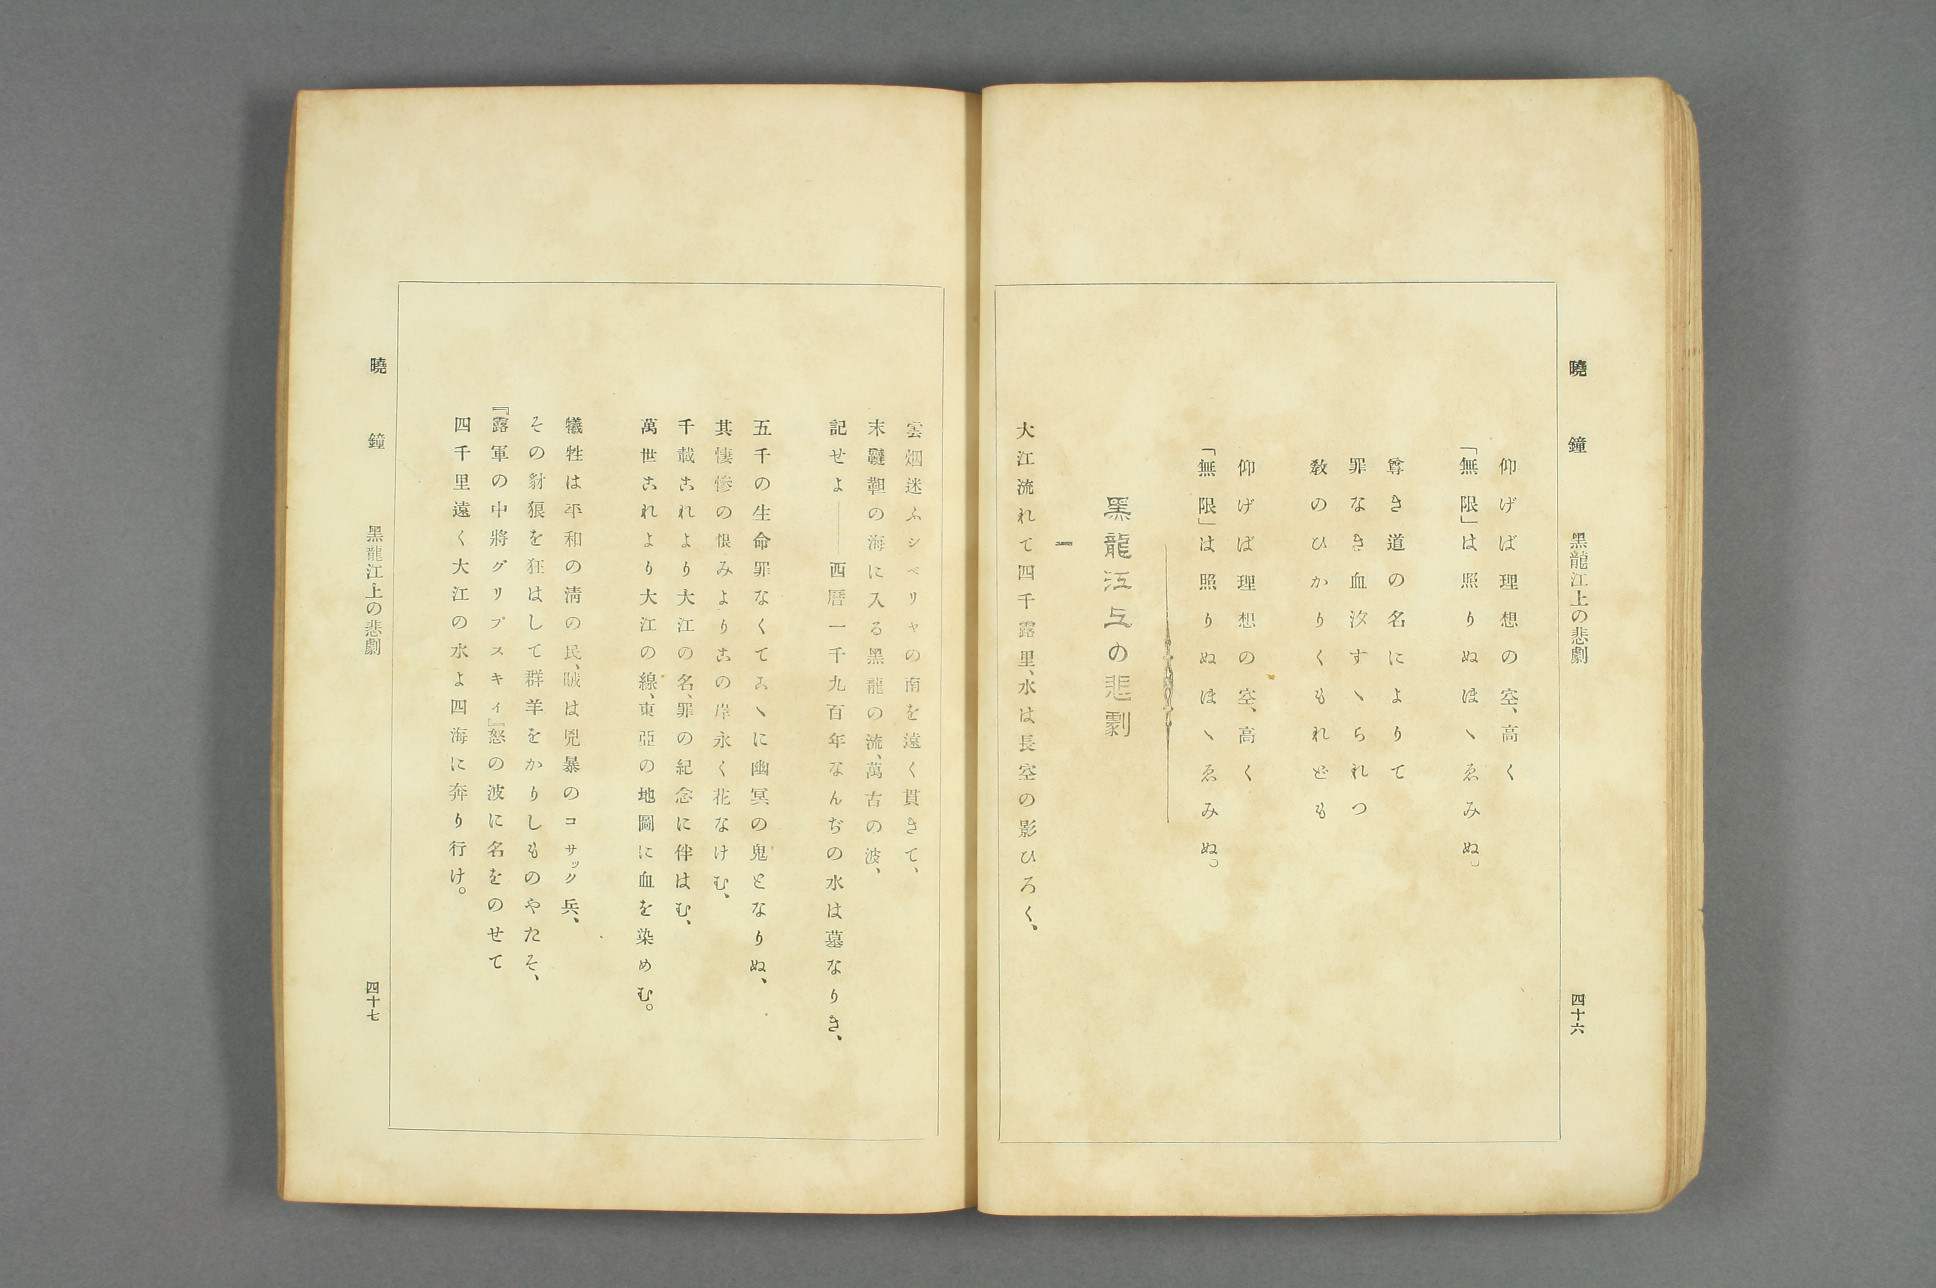 曉鐘　黑龍江上の悲劇　四十六
仰げば理想の空、高く
「無限」は照りぬほゝゑみぬ。
尊き道の名によりて
罪なき血汐すゝられつ
敎のひかりくもれども
仰げば理想の空、高く
「無限」は照りぬほゝゑみぬ。
黑龍江上の悲劇
一
大江流れて四千露里、水は長空の影ひろく、
雲烟迷ふシベリヤの南を遠く貫きて、
末韃靼の海に入る黑龍の流、萬古の波、
記せよ――西曆一千九百年なんぢの水は墓なりき、
五千の生命罪なくてこゝに幽冥の鬼となりぬ、
其悽慘の恨みよりこの岸永く花なけむ、
千載これより大江の名、罪の紀念に伴はむ、
萬世これより大江の線、東亞の地圖に血を染めむ。
犧牲は平和の淸の民、賊は兇暴のコサック兵、
その豺狼を狂はして群羊をかりしものやたそ、
『露軍の中將グリプスキィ』怒の波に名をのせて
四千里遠く大江の水よ四海に奔り行け。
曉鐘　黑龍江上の悲劇　四十七